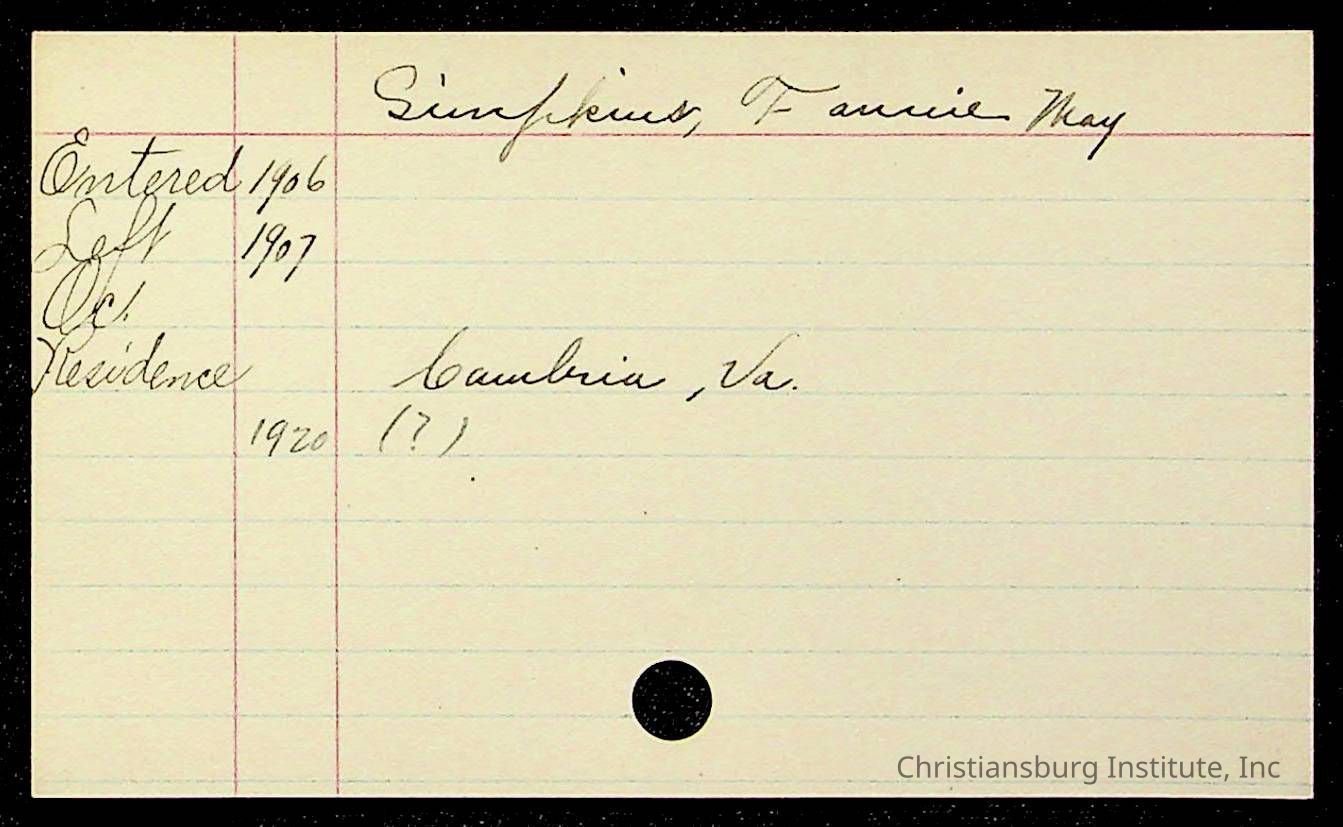 Simpkins, Fannie May
Entered 1906
Left 1907
Oc.
Residence Cambria, Va.
1920 (?)
Christiansburg Institute, Inc